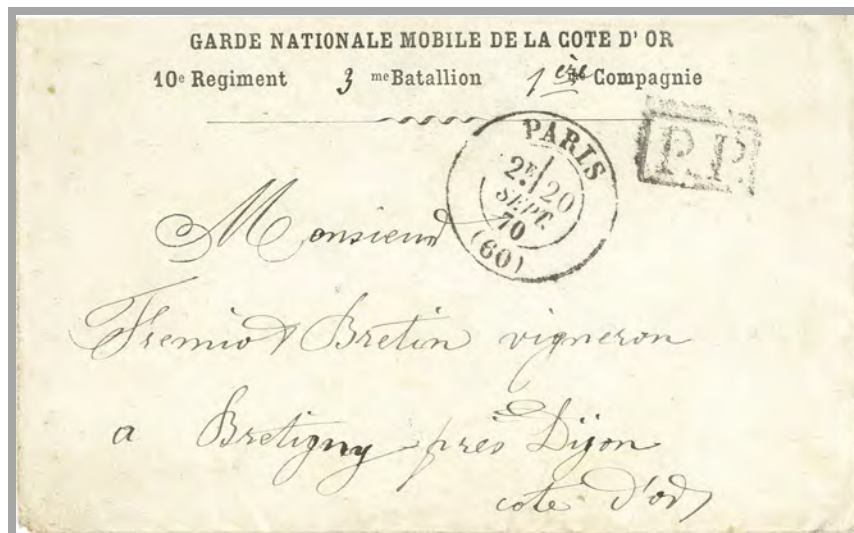 GARDE NATIONALE MOBILE DE LA COTE D' OR
10e Regiment 3 me Batallion 1ère Compagnie
PARIS
2E 20
SEPT.
70
(60)
P.P.
Monsieur
Fremiot Bretin vigneron
a Bretigny près Dijon
cote d'or